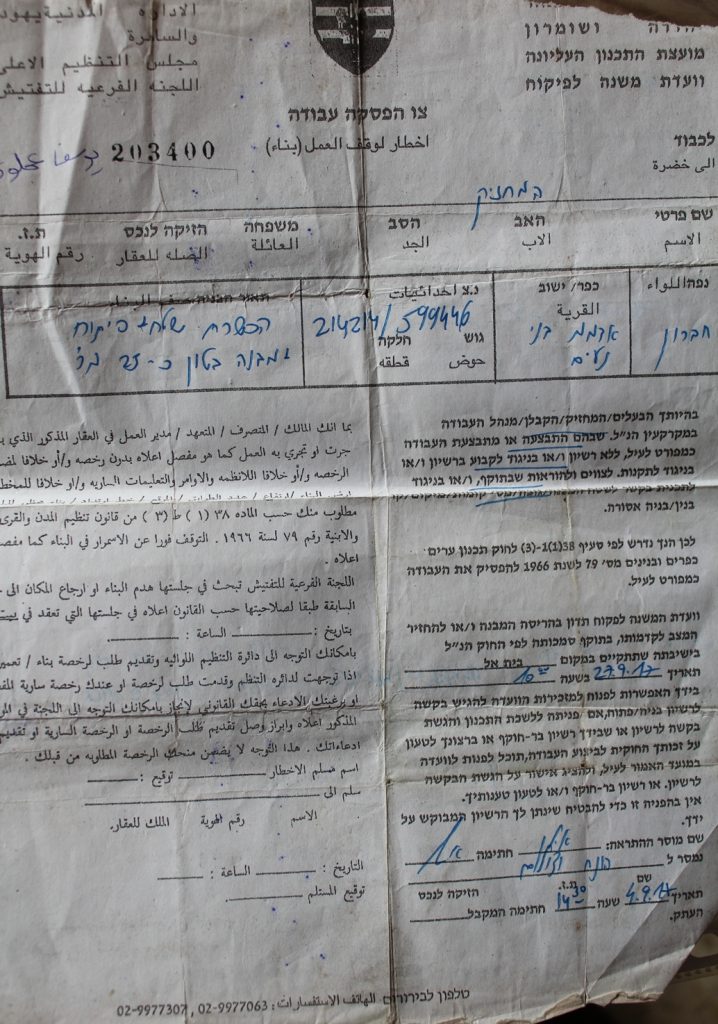 ושומרון
מועצת התכנון העליונה
וועדת משנה לפיקוח
الاداره المدنية
والسامرة
مجلس التنظيم الاعلى
اللجنه الفرعيه للتفتيش
צו הפסקה עבודה
اخطار لوقف العمل (بناء)
203400
לכבוד
الى خضرة
המחזיק
שם פרטי האב הסב משפחה הזיקה לנכס ת.ז.
الاسم الاب الجد العائلة الصله للعقار رقم الهوية
נפה/اللواء
חברון
כפר/ ישוב
القرية
אדמת בני
נעים
נ.צ احداثيات
214214/599446
גוש חלקה
حوض قطقه
הכשרת שטח פיתוח
ומבנה בטון כ-25 מ"ר
בהיותך הבעלים/המחזיק/הקבלן/מנהל העבודה
במקרקעין הנ"ל. שבהם התבצעה או מתבצעת העבודה
כמפורט לעיל, ללא רשיון ו/או בניגוד לקבוע ברשיון ו/או
בניגוד לתקנות. לצווים ולהוראות שבתוקף, ו/או בניגוד
בנין/בניה אסורה.
לכן הנך נדרש לפי סעיף 38(1)-(3) לחוק תכנון ערים
כפרים ובנינים מס' 79 לשנת 1966 להפסיק את העבודה
כמפורט לעיל.
וועדת המשנה לפקוח תדון בהריסת המבנה ו/או להחזיר
המצב לקדמותו, בתוקף סמכותה לפי החוק הנ"ל
בישיבתה שתתקיים במקום בית אל
תאריך 27.9.17 בשעה 10⁰⁰
בידך האפשרות לפנות למזכירות הוועדה להגיש בקשה
לרשיון בניה/פתוח,אם פניתה ללשכת התכנון והגשת
בקשה לרשיון או שבידך רשיון בר-חוקף או ברצונך לטעון
על זכותך החוקית לביצוע העבודה,תוכל לפנות לוועדה
במועד האמור לעיל, ולהציג אישור על הגשת הבקשה
לרשיון. או רשיון בר-חוקף ו/או לטעון טענותיך.
אין בהפניה זו כדי להבטיח שינתן לך הרשיון המבוקש על
ידך.
שם מוסר ההתראה: חתימה
נמסר ל הונח וצולם
שם ת.ז. הזיקה לנכס
תאריך 4.9.17 שעה 14³⁰ חתימה המקבל
העתק.
بما انك المالك / المتصرف / المتعهد / مدير العمل في العقار المذكور الذي
جرت او تجري به العمل كما هو مفصل اعلاه بدون رخصه و/أو خلافا
الرخصه و/أو خلافا للانظمه والاوامر والتعليمات الساريه و/او خلافا
مطلوب منك حسب الماده ٣٨ (١) ط (٣) من قانون تنظيم المدن والقرى
والابنية رقم ٧٩ لسنة ١٩٦٦ . التوقف فورا عن الاسمرار في البناء كما
اعلاه .
اللجنة الفرعية للتفتيش تبحث في جلستها هدم البناء او ارجاع المكان الى
السابقة طبقا لصلاحيتها حسب القانون اعلاه في جلستها التي تعقد في
بتاريخ : الساعة :
بامكانك التوجه الى دائرة التنظيم اللوائيه وتقديم طلب لرخصة بناء / تعمير
اذا توجهت لدائره التنظم وقدمت طلب لرخصة او عندك رخصة سارية
او برغبتك الادعاء بحقك القانوني لإنجاز بامكانك التوجه الى اللجنة في
المذكور اعلاه وابراز وصل تقديم طلب الرخصة او الرخصة السارية او
ادعاءاتك . هذا التوجه لا يضمن منحك الرخصة المطلوبه من قبلك .
اسم مسلم الاخطار توقيع :
سلم الى
الاسم رقم الهوية الملك للعقار.
التاريخ : الساعة :
توقيع المستلم
טלפון לבירורים الهاتف الاستفسارات : 02-9977063 , 02-9977307